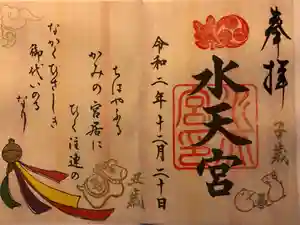 奉拝
子歳
水天宮
令和二年十二月二十日
ちはやふる
かみの宮居に
ひく注連の
なかくひさしき
御代いのる
なり
丑歳